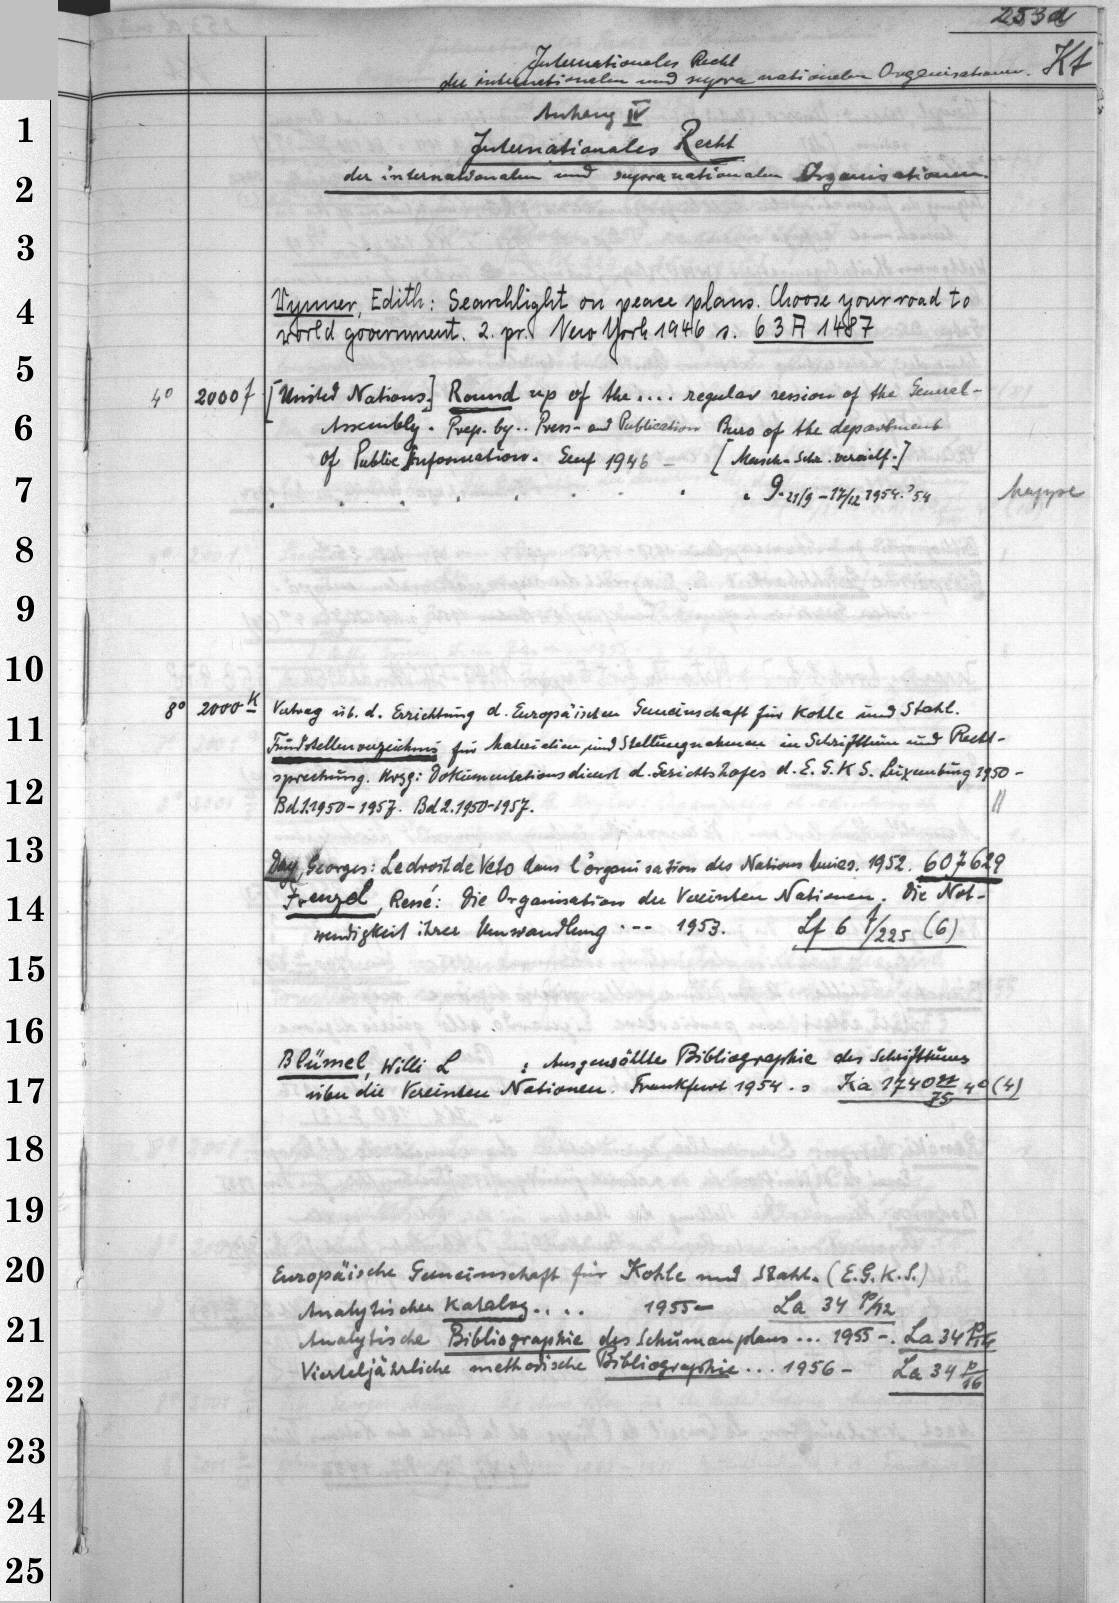 253d
Internationales Recht
der internationalen und supranationalen Organisationen. Kt
Anhang IV
1
Internationales Recht
2
der internationalen und supranationalen Organisationen.
3
4
Wynner, Edith: Searchlight on peace plans. Choose your road to
world government. 2. pr. New York 1946 s. 63 A 1487
5
4° 2000 f [United Nations.] Round up of the .... regular session of the General-
6
Assembly. Prep. by .. Press- and Publication Buro of the department
of Public Information. Genf 1946 - [Masch. Schr. vervielf.]
7
. . . . . . . . 9. 21/9 - 17/12 1954. '54 Mappe
8
9
10
8° 2000 K Vertrag üb. d. Errichtung d. Europäischen Gemeinschaft für Kohle und Stahl.
11
Fundstellenverzeichnis für Materialien und Stellungnahmen in Schrifttum und Recht-
sprechung. Hrsg: Dokumentationsdienst d. Gerichtshofes d. E.G.K.S. Luxemburg 1950 -
12
Bd 1. 1950 - 1957. Bd 2. 1950-1957. ||
13
Day, Georges: Le droit de Veto dans l'organisation des Nations Unies. 1952. 607629
14
Frenzel, René: Die Organisation der Vereinten Nationen. Die Not-
wendigkeit ihrer Umwandlung . -- 1953. Lf 6 f/225 (6)
15
16
Blümel, Willi L : Ausgewählte Bibliographie des Schrifttums
17
über die Vereinten Nationen. Frankfurt 1954. s Ka 1740 4° (4)
18
19
20
Europäische Gemeinschaft für Kohle und Stahl. (E.G.K.S.)
Analytischer Katalog .... 1955 - La 34 p/12
21
Analytische Bibliographie des Schumanplans ... 1955 -. La 34 p/14
Vierteljährliche methodische Bibliographie ... 1956 - La 34 p/16
22
23
24
25